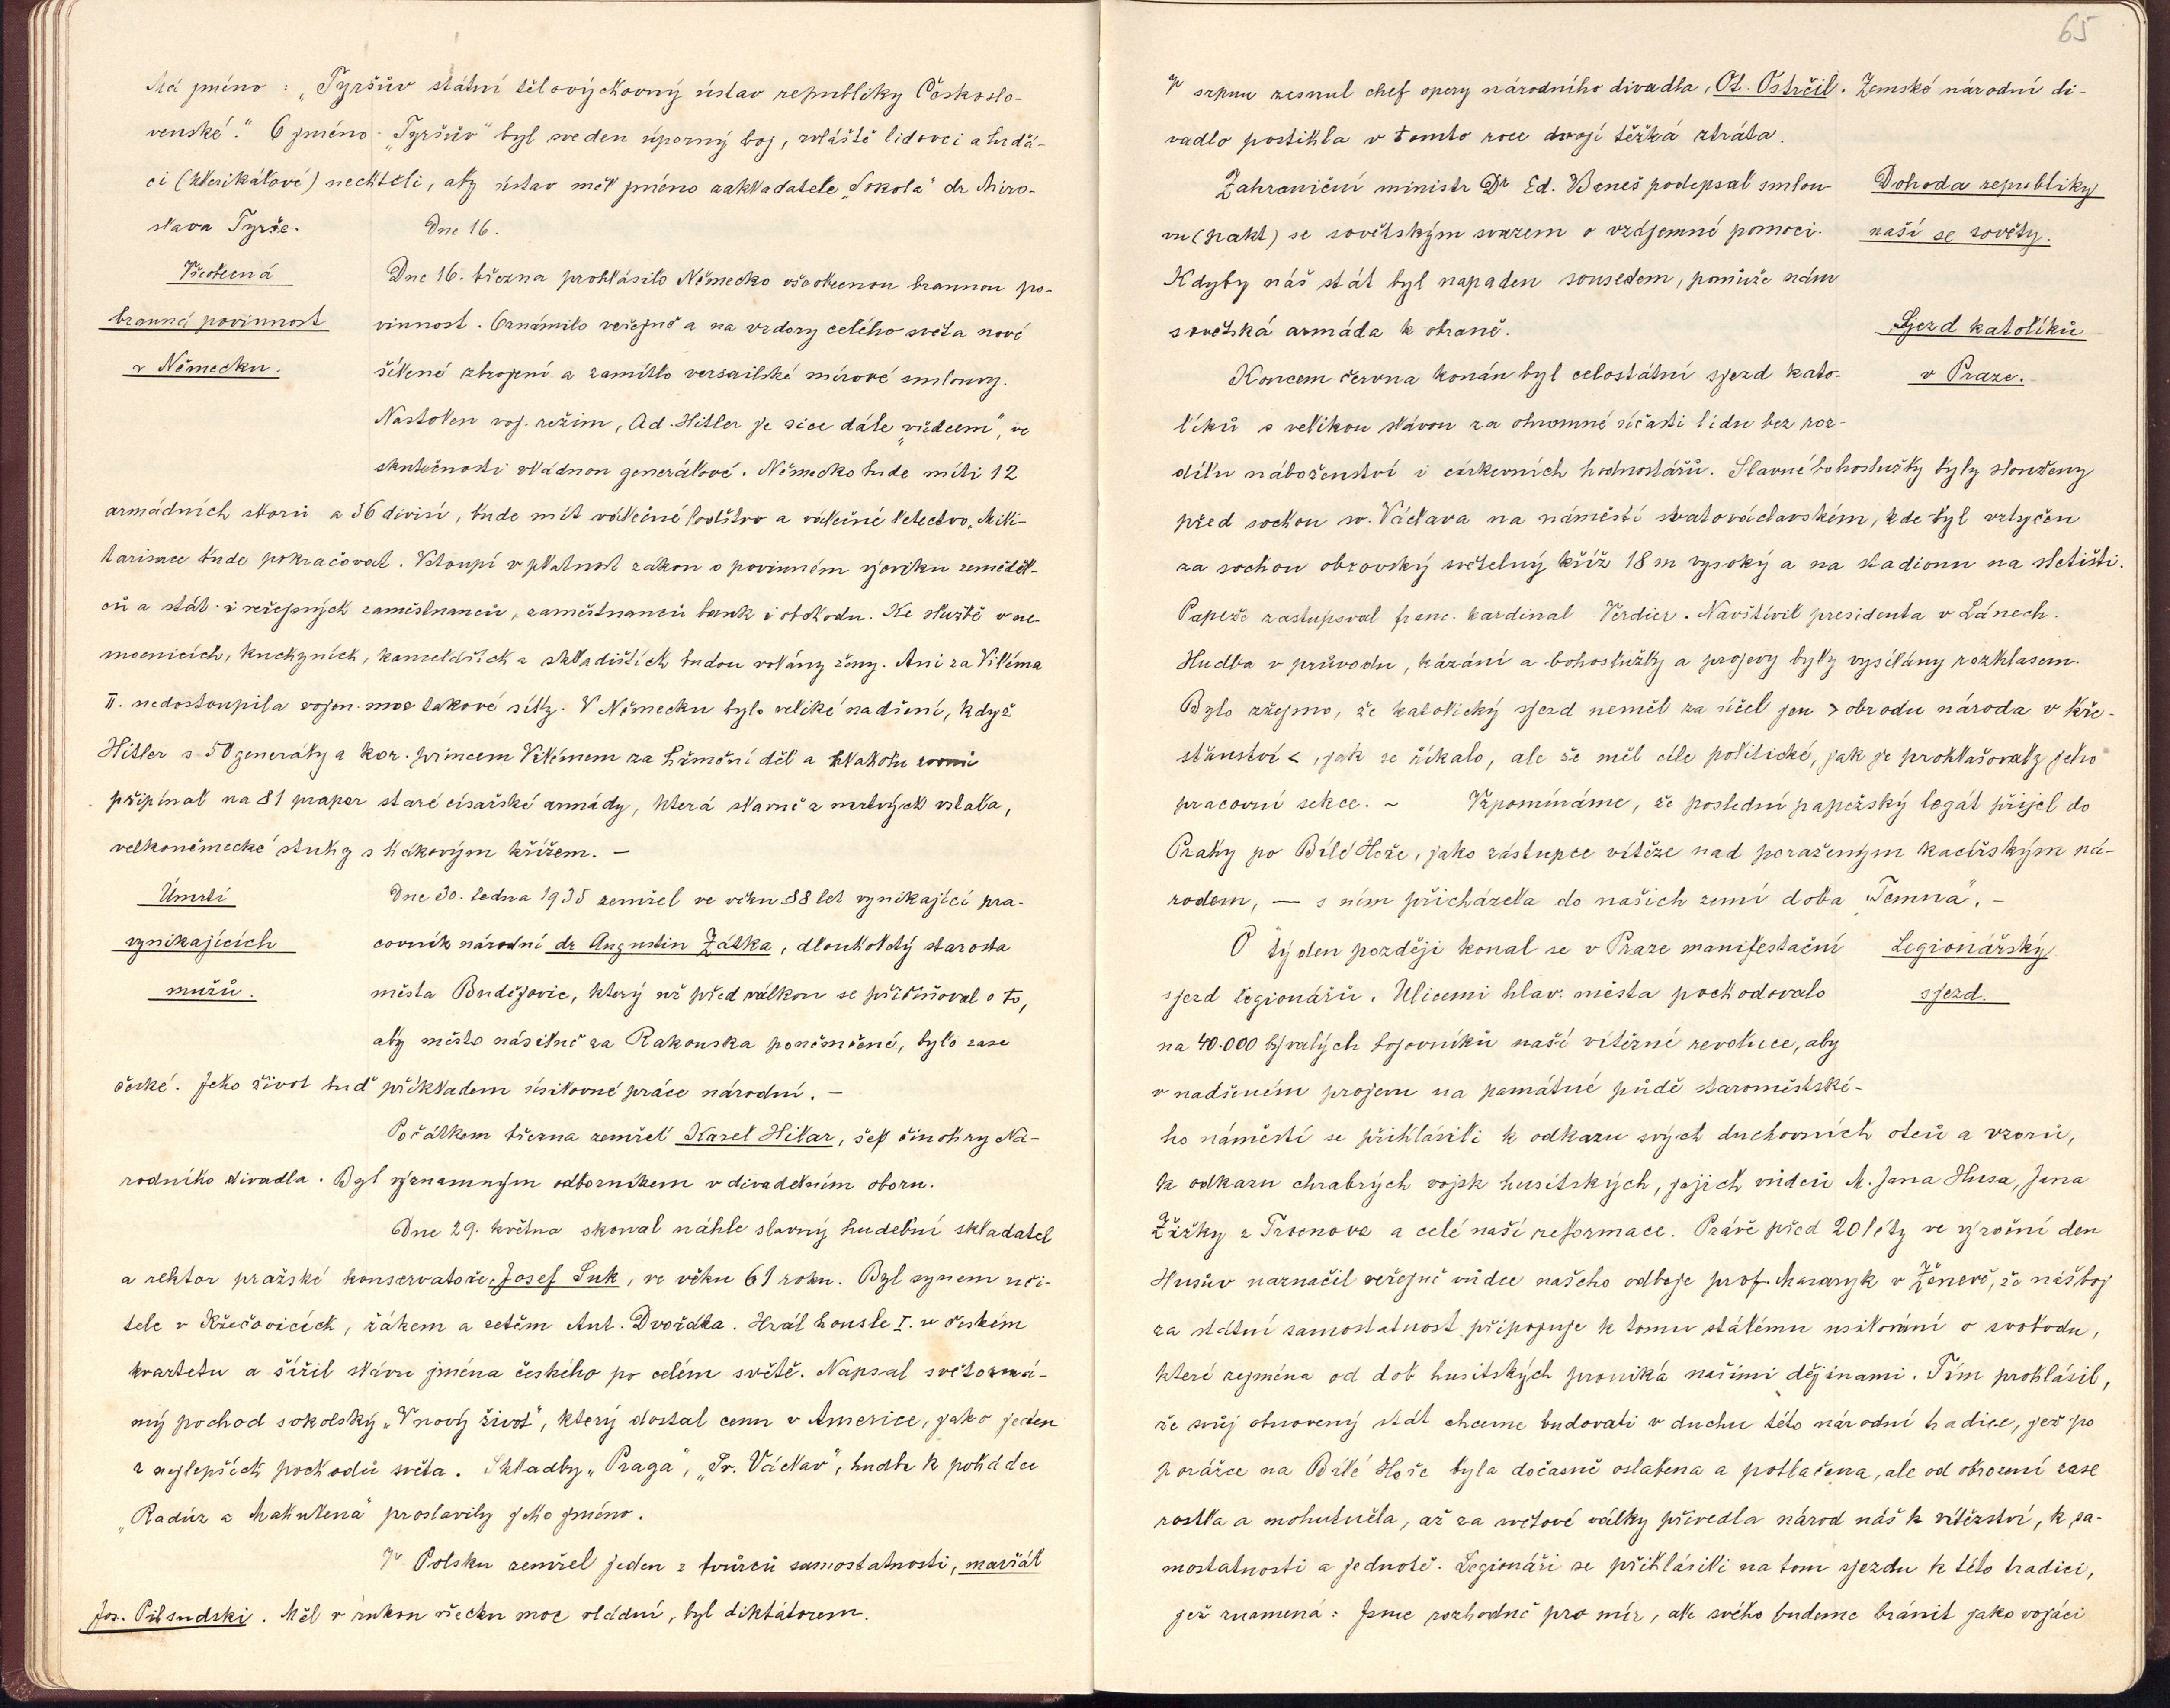 Má jméno: „Tyršův státní tělovýchovný ústav republiky Českoslo-
venské." O jméno „Tyršův" byl sveden úporný boj, zvláště lidovci a luďá-
ci (klerikálové) nechtěli, aby ústav měl jméno zakladatele „Sokola" dr Miro-
slava Tyrše. Dne 16.
Všeobecná
branná povinnost
v Německu.
Dne 16. března prohlásilo Německo všeobecnou brannou po-
vinnost. Oznámilo veřejně a na vzdory celého světa nové
šílené zbrojení a zamítlo versailské mírové smlouvy.
Nastolen voj. režim, Ad. Hitler je sice dále „vůdcem", ve
skutečnosti vládnou generálové. Německo bude míti 12
armádních sborů a 36 divisí, bude mít válečné loďstvo a válečné letectvo. Mili-
tarisace bude pokračovat. Vstoupí v platnost zákon o povinném výcviku zeměděl-
ců a stát. i veřejných zaměstnanců, zaměstnanců bank i obchodu. Ke službě v ne-
mocnicích, kuchyních, kancelářích a skladištích budou volány ženy. Ani za Viléma
II. nedostoupila vojen. moc takové síly. V Německu bylo veliké nadšení, když
Hitler s 50 generály a kor. princem Vilémem za hřmění děl a hlaholu zvonů
připínal na 81 prapor staré císařské armády, která slavně z mrtvých vstala,
velkoněmecké stuhy s hákovým křížem. —
Úmrtí
vynikajících
mužů.
Dne 30. ledna 1935 zemřel ve věku 88 let vynikající pra-
covník národní dr Augustin Zátka, dlouholetý starosta
města Budějovic, který už před válkou se přičiňoval o to,
aby město násilně za Rakouska poněmčené, bylo zase
české. Jeho život buď příkladem úsilovné práce národní. —
Počátkem března zemřel Karel Hilar, šéf činohry Ná-
rodního divadla. Byl významným odborníkem v divadelním oboru.
Dne 29. května skonal náhle slavný hudební skladatel
a rektor pražské konservatoře, Josef Suk, ve věku 61 roku. Byl synem uči-
tele v Křečovicích, žákem a zetěm Ant. Dvořáka. Hrál housle I. v českém
kvartetu a šířil slávu jména českého po celém světě. Napsal světozná-
mý pochod sokolský „V nový život", který dostal cenu v Americe, jako jeden
z nejlepších pochodů světa. Skladby „Praga", „Sv. Václav", hudba k pohádce
„Radúz a Mahulena" proslavily jeho jméno.
V Polsku zemřel jeden z tvůrců samostatnosti, maršál
Jos. Pilsudski. Měl v rukou všecku moc vládní, byl diktátorem.
65
V srpnu zesnul chef opery národního divadla, Ot. Ostrčil. Zemské národní di-
vadlo postihla v tomto roce dvojí těžká ztráta.
Dohoda republiky
naší se sověty.
Zahraniční ministr Dr Ed. Beneš podepsal smlou-
vu (pakt) se sovětským svazem o vzájemné pomoci.
Kdyby náš stát byl napaden sousedem, pomůže nám
sovětská armáda k obraně.
Sjezd katolíků
v Praze.
Koncem června konán byl celostátní sjezd kato-
líků s velikou slávou za ohromné účasti lidu bez roz-
dílu náboženství i církevních hodnostářů. Slavné bohoslužby byly slouženy
před sochou sv. Václava na náměstí svatováclavském, kde byl vztyčen
za sochou obrovský světelný kříž 18 m vysoký a na stadionu na sletišti.
Papeže zastupoval franc. kardinal Verdier. Navštívil presidenta v Lánech.
Hudba v průvodu, kázání a bohoslužby a projevy byly vysílány rozhlasem.
Bylo zřejmo, že katolický sjezd neměl za účel jen >obrodu národa v kře-
sťanství<, jak se říkalo, ale že měl cíle politické, jak je prohlašovaly jeho
pracovní sekce. ~ Vzpomínáme, že poslední papežský legát přijel do
Prahy po Bílé Hoře, jako zástupce vítěze nad poraženým kacířským ná-
rodem, — s ním přicházela do našich zemí doba „Temna". —
Legionářský
sjezd.
O týden později konal se v Praze manifestační
sjezd legionářů. Ulicemi hlav. města pochodovalo
na 40.000 bývalých bojovníků naší vítězné revoluce, aby
v nadšeném projevu na památné půdě staroměstské-
ho náměstí se přihlásili k odkazu svých duchovních otců a vzorů,
k odkazu chrabrých vojsk husitských, jejich vůdců M. Jana Husa, Jana
Žižky z Trocnova a celé naší reformace. Právě před 20 léty ve výroční den
Husův naznačil veřejně vůdce našeho odboje prof. Masaryk v Ženevě, že náš boj
za státní samostatnost připojuje k tomu stálému usilování o svobodu,
které zejména od dob husitských proniká našimi dějinami. Tím prohlásil,
že svůj obnovený stát chceme budovati v duchu této národní tradice, jež po
porážce na Bílé Hoře byla dočasně oslabena a potlačena, ale od obrození zase
rostla a mohutněla, až za světové války přivedla národ náš k vítězství, k sa-
mostatnosti a jednotě. Legionáři se přihlásili na tom sjezdu k této tradici,
jež znamená: Jsme rozhodně pro mír, ale svého budeme bránit jako vojáci